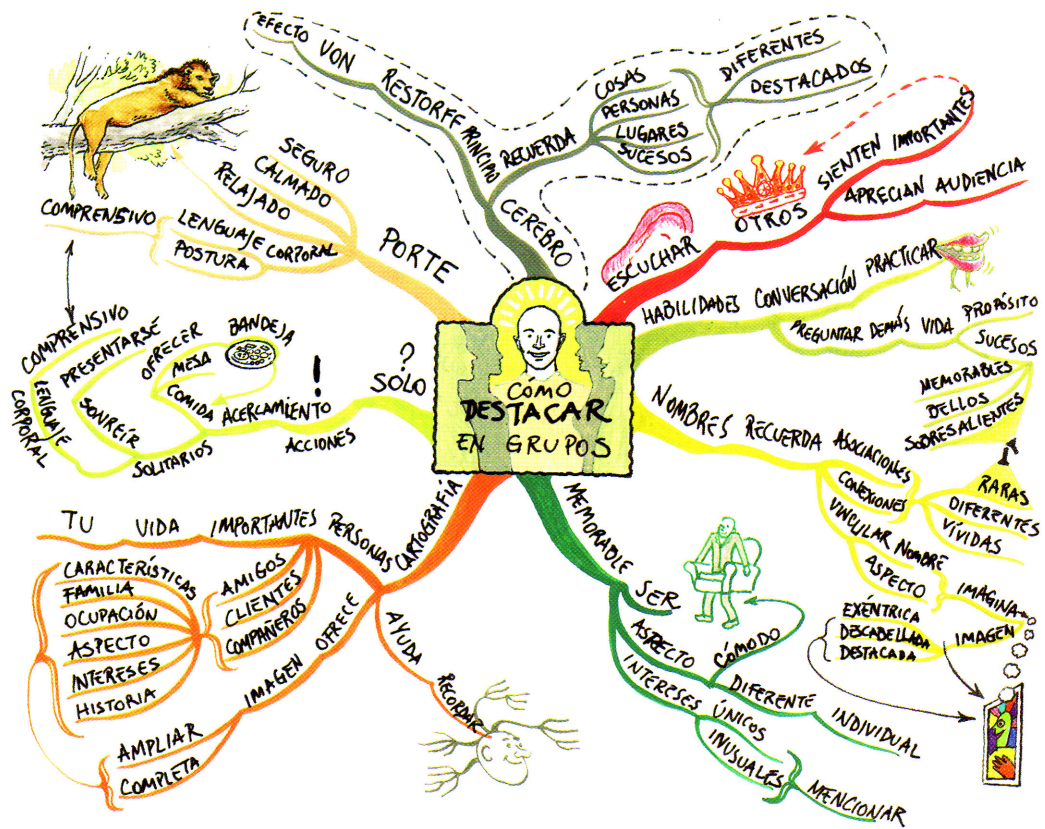 CÓMO
DESTACAR
EN GRUPOS
CEREBRO
PRINCIPIO
EFECTO VON RESTORFF
RECUERDA
COSAS
PERSONAS
LUGARES
SUCESOS
DIFERENTES
DESTACADOS
ESCUCHAR
OTROS
SIENTEN IMPORTANTES
APRECIAN AUDIENCIA
HABILIDADES CONVERSACIÓN PRACTICAR
PREGUNTAR DEMÁS VIDA
PROPÓSITO
SUCESOS
MEMORABLES
BELLOS
SOBRESALIENTES
NOMBRES RECUERDA ASOCIACIONES
CONEXIONES
RARAS
DIFERENTES
VÍVIDAS
VINCULAR NOMBRE
ASPECTO
IMAGINA
IMAGEN
EXÉNTRICA
DESCABELLADA
DESTACADA
MEMORABLE
SER
ASPECTO
CÓMODO
DIFERENTE
INDIVIDUAL
INTERESES ÚNICOS
INUSUALES
MENCIONAR
CARTOGRAFÍA
PERSONAS
IMPORTANTES
VIDA
TU
AMIGOS
CLIENTES
COMPAÑEROS
CARACTERÍSTICAS
FAMILIA
OCUPACIÓN
ASPECTO
INTERESES
HISTORIA
OFRECE
IMAGEN
AMPLIAR
COMPLETA
AYUDA
RECORDAR
SÓLO
?
ACCIONES
!
ACERCAMIENTO
OFRECER
MESA
COMIDA
BANDEJA
SOLITARIOS
PRESENTARSE
SONREÍR
COMPRENSIVO
LENGUAJE
CORPORAL
PORTE
SEGURO
CALMADO
RELAJADO
LENGUAJE CORPORAL
POSTURA
COMPRENSIVO